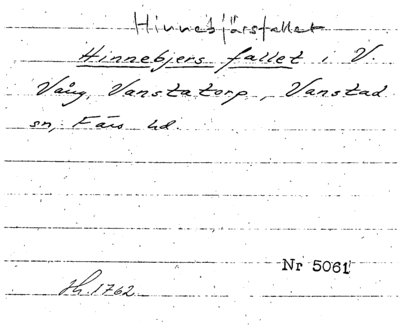 Hinnebjärsfallet
Hinnebjers fallet i V.
Vång, Vanstatorp, Vanstad
sn, Färs hd.
Nr 5061
Sk. 1762